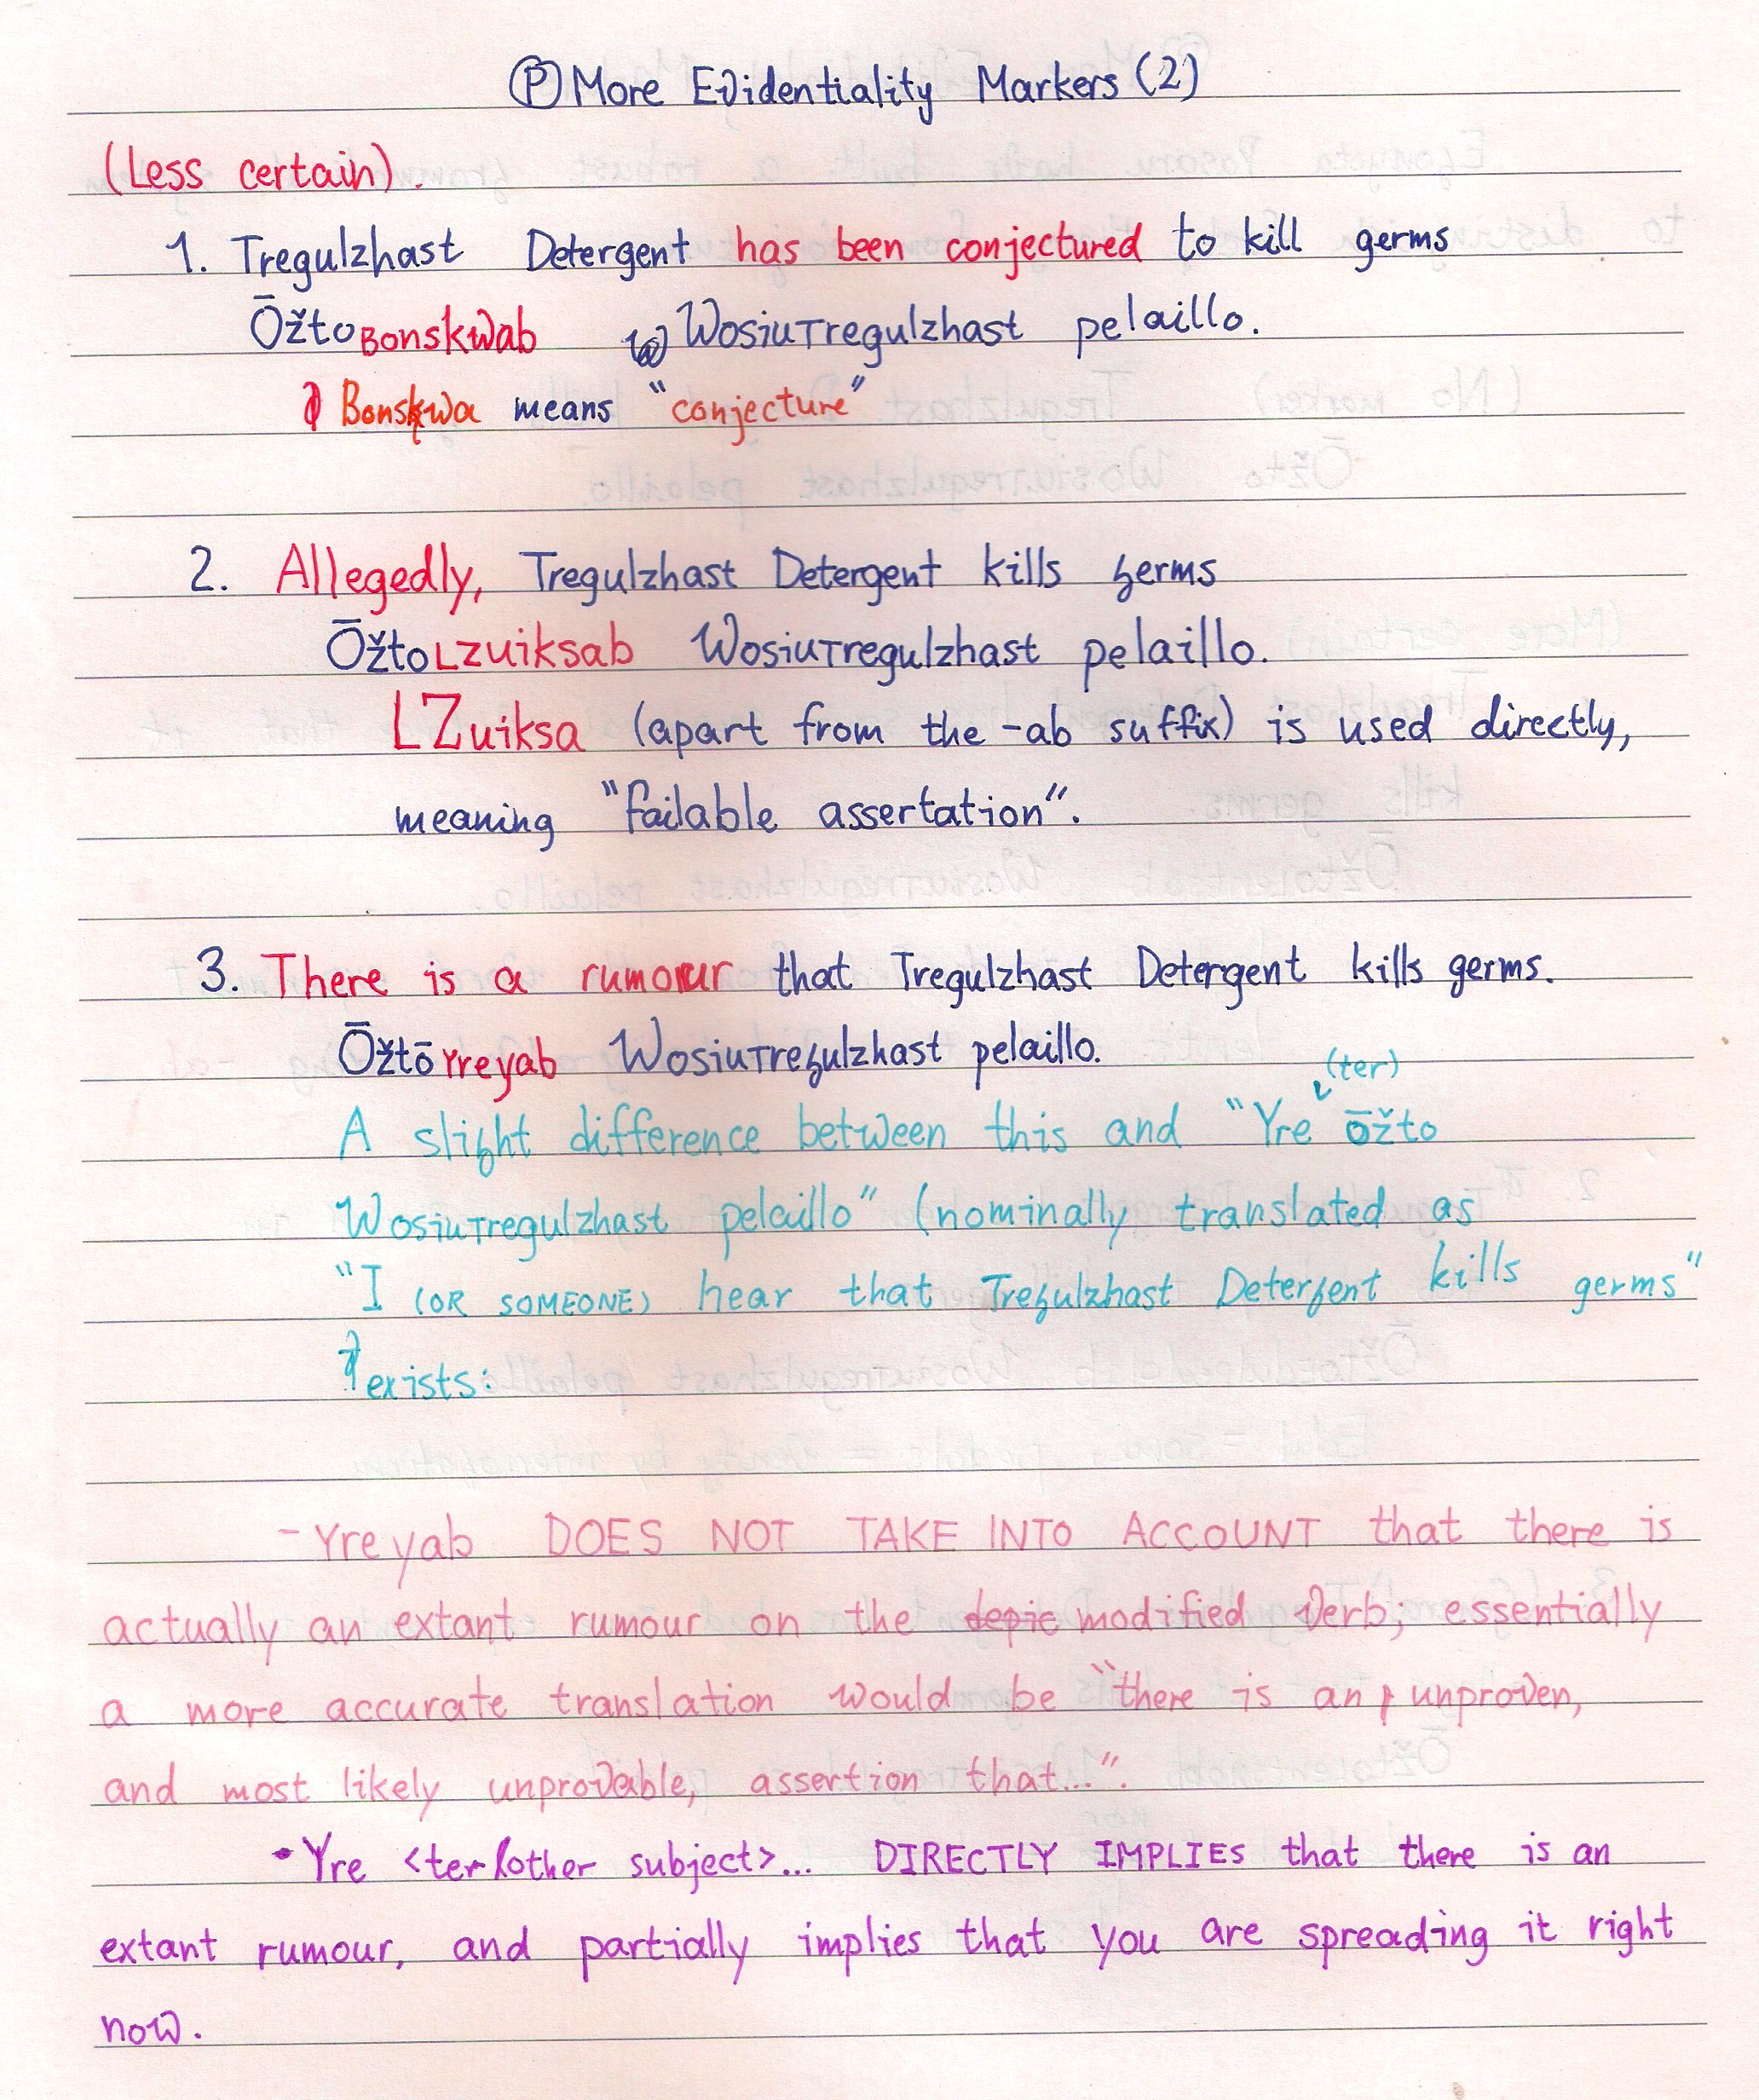 Ⓟ More Evidentiality Markers (2)
(Less certain).
1. Tregulzhast Detergent has been conjectured to kill germs
ŌžtoBonskwab Wosiutregulzhast pelaillo.
Bonskwa means "conjecture"
2. Allegedly, Tregulzhast Detergent kills germs
ŌžtoLzuiksab Wosiutregulzhast pelaillo.
LZuiksa (apart from the -ab suffix) is used directly,
meaning "failable assertation".
3. There is a rumour that Tregulzhast Detergent kills germs.
Ōžtōyreyab Wosiutregulzhast pelaillo.
(ter)
A slight difference between this and "Yre ōžto
Wosiutregulzhast pelaillo" (nominally translated as
"I (OR SOMEONE) hear that Tregulzhast Detergent kills germs"
exists:
-Yreyab DOES NOT TAKE INTO ACCOUNT that there is
actually an extant rumour on the depic modified verb; essentially
a more accurate translation would be "there is an unproven,
and most likely unprovable, assertion that...".
• Yre <ter/other subject>... DIRECTLY IMPLIES that there is an
extant rumour, and partially implies that you are spreading it right
now.